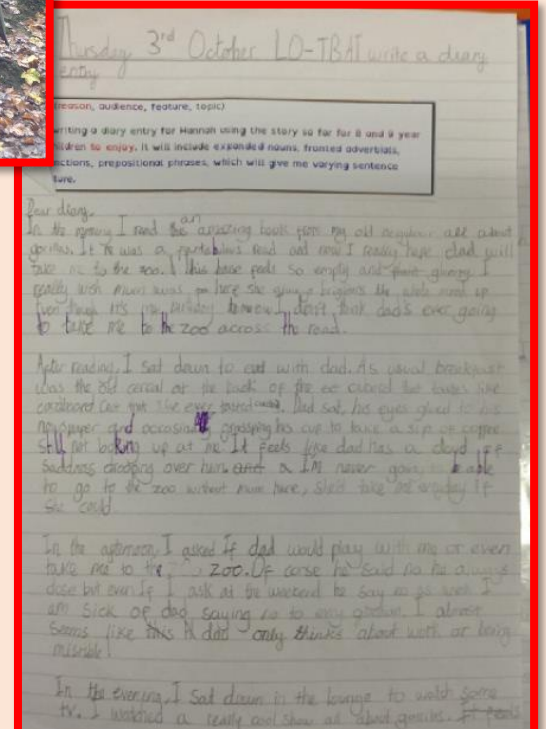 Thursday 3rd October LO-TBAT write a diary
entry
(reason, audience, feature, topic)
writing a diary entry for Hannah using the story so far for 8 and 9 year
children to enjoy. It will include expanded nouns, fronted adverbials,
nctions, prepositional phrases, which will give me varying sentence
ture.
Dear diary,
In the morning I read an amazing book from my old all about
gorillas. It was a read and now I really hope dad will
take me to the zoo. This house feels so empty and gloomy I
really wish mum was here she always brightens the whole mood up
Even though it's my birthday I don't think dad's ever going
to take me to the zoo across the road.
After reading, I sat down to eat with dad. As usual breakfast
was the old cereal at the back of the that tastes like
cardboard Dad sat, his eyes glued to his
newspaper and his cup to take a sip of coffee
still not looking up at me It feels like dad has a cloud of
drooping over him a I'm never going to be able
to go to the zoo without mum here, she'd take me if
she could.
In the afternoon, I asked If dad would play with me or even
take me to the zoo. Of corse he said no he always
dose but even If I ask at the weekend he say no as well I
am sick of dad saying no to I almost
seems like this dad only thinks about work or being
In the evening, I sat down in the lounge to watch some
tv. I watched a really cool show all about gorillas. It feels